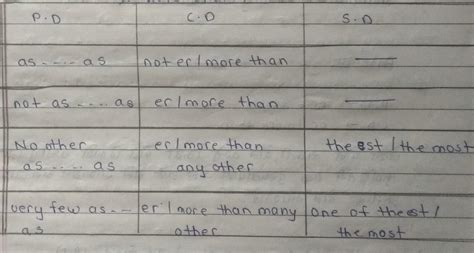 P.D C.D S.D
as ---- as not er/more than ——
not as ---- as er/more than ——
No other er/more than the est/the most
as ---- as any other
very few as -- er/more than many one of the est/
as other the most